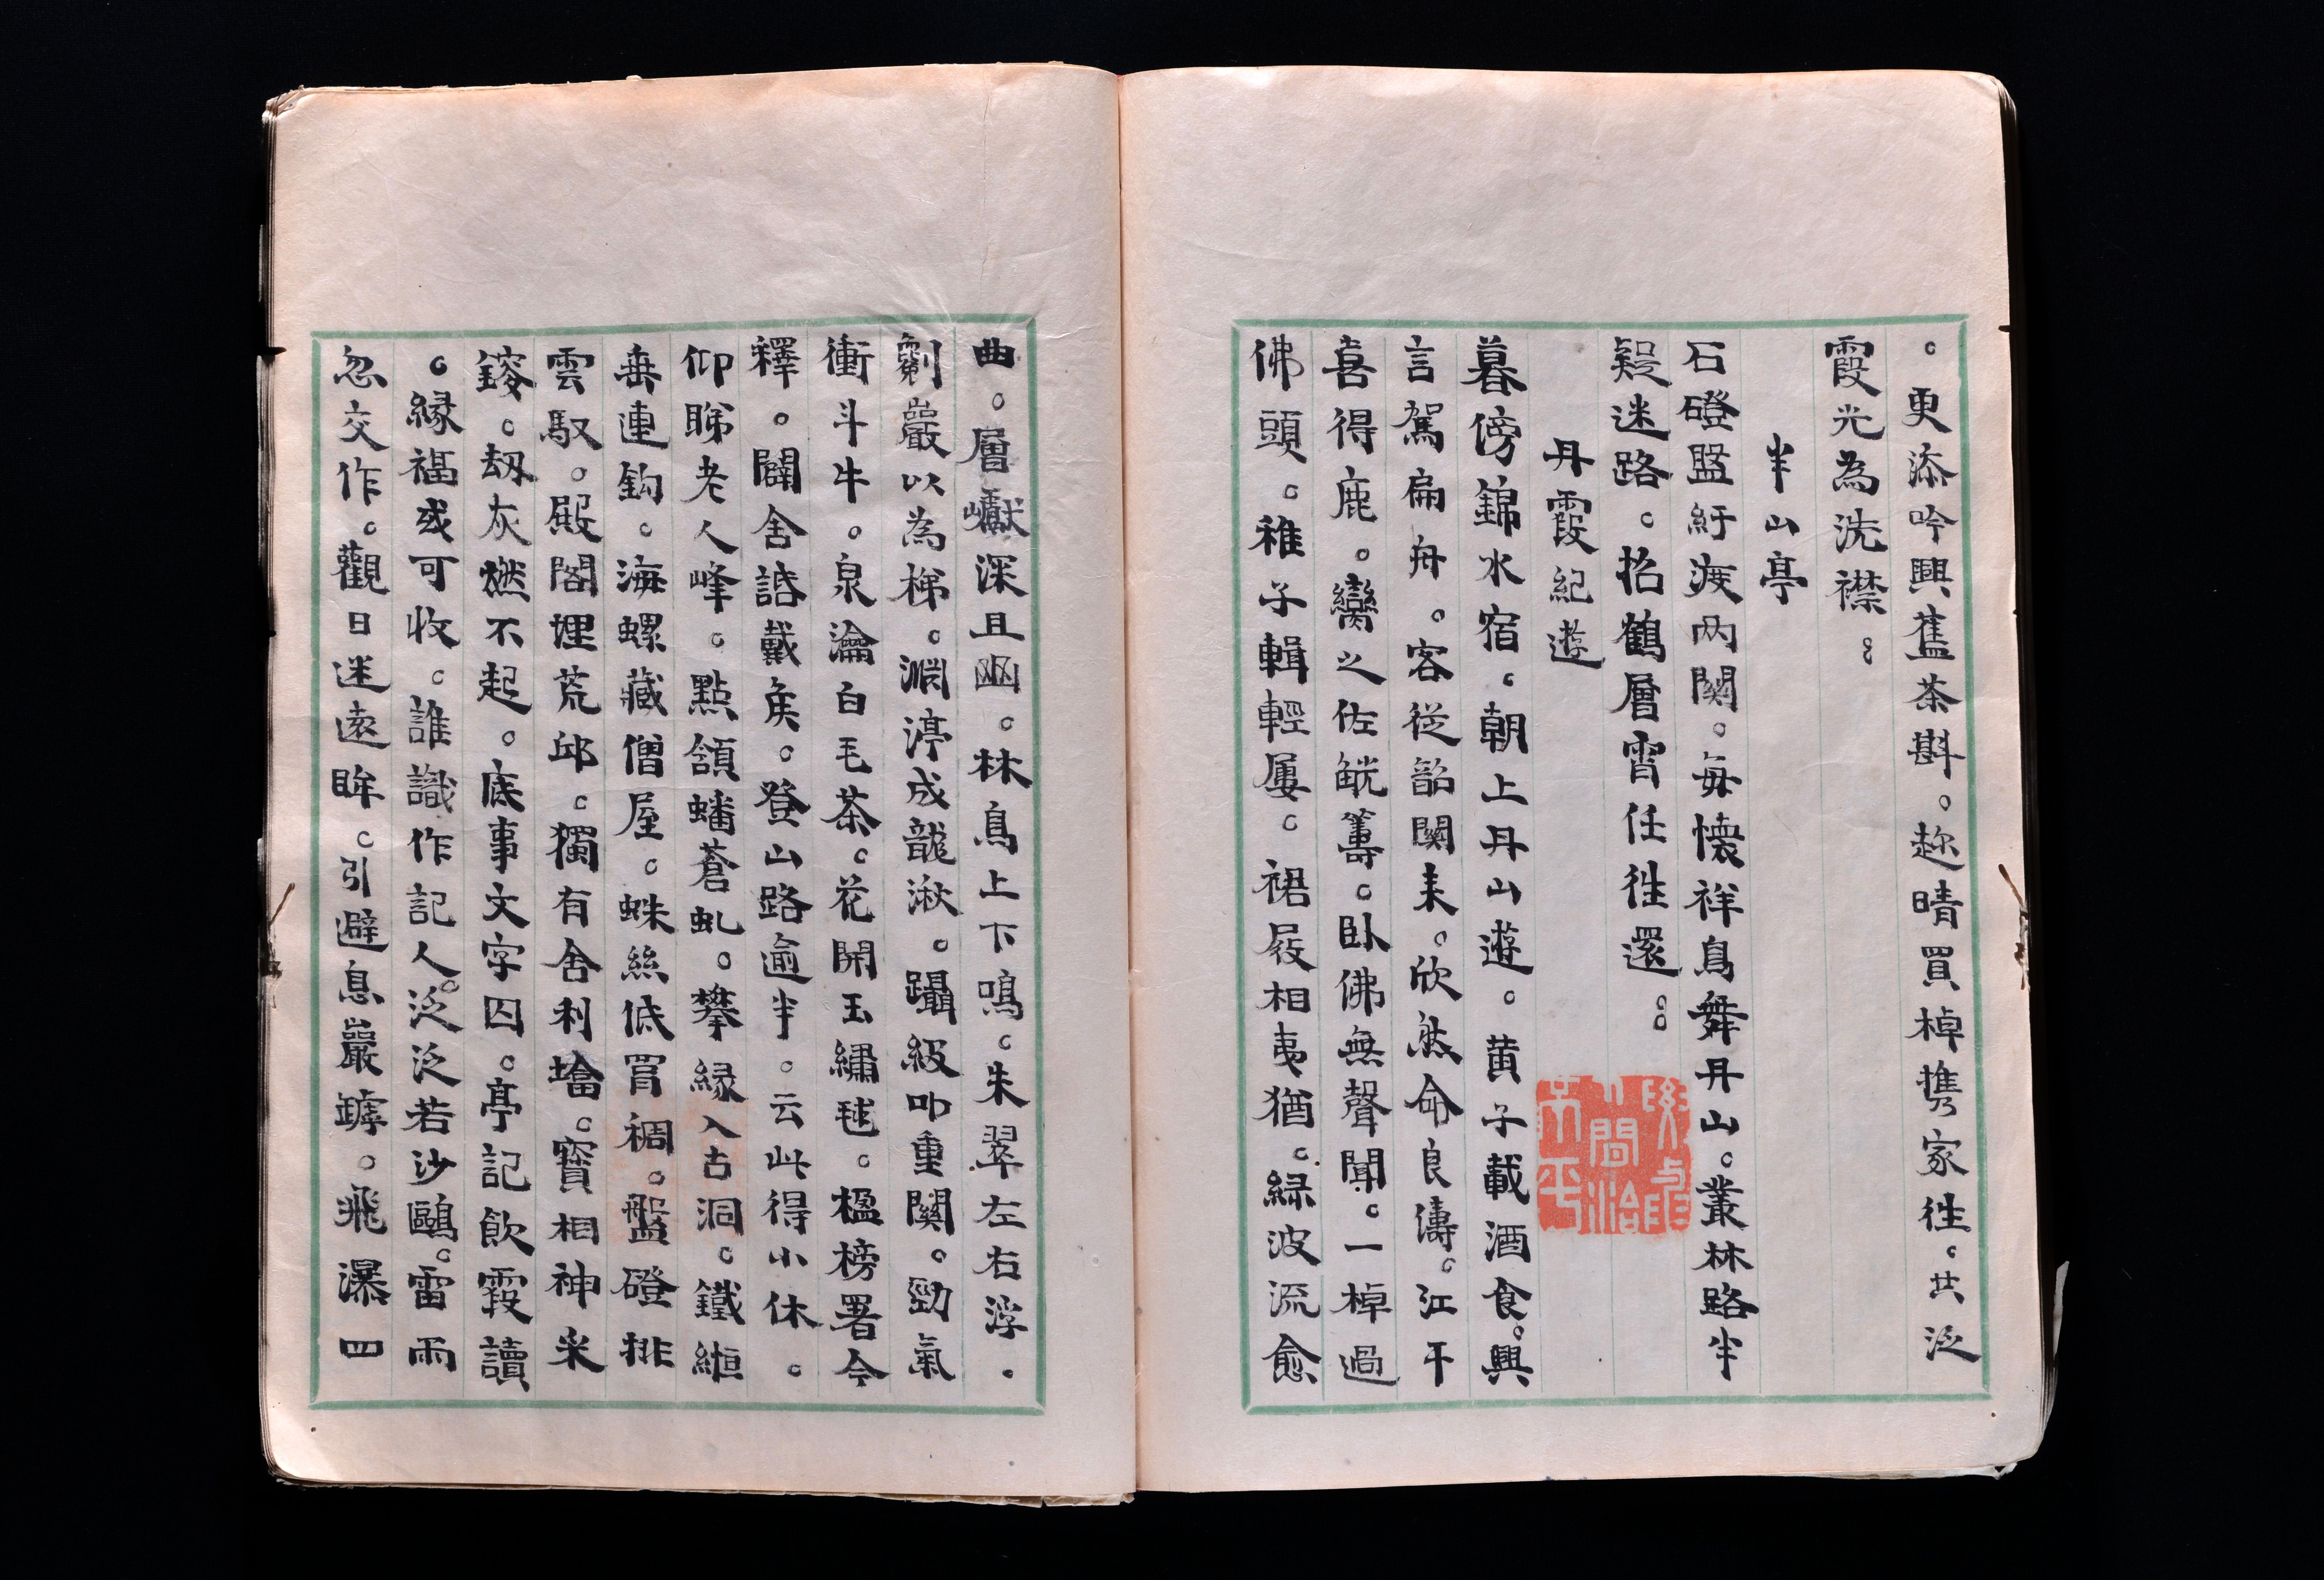 。更添吟興舊茶斟。趂晴買棹携家往。共泛
霞光為洗襟。。
半山亭
石磴盤紆渡两関。每懷祥鳥舞丹山。叢林路半
疑迷路。招鶴層霄任徃還。。
丹霞紀遊
暮傍錦水宿。朝上丹山遊。黄子載酒食。興
言駕扁舟。客從韶関来。欣然命良儔。江干
喜得鹿。鸞之佐觥籌。卧佛無聲聞。一棹過
佛頭。稚子輯輕屢。裙屐相夷猶。緑波流愈
曲。層巘深且幽。林鳥上下鳴。朱翠左右浮。
劖巖以為梯。渊渟成龍湫。躡級叩重関。勁氣
衝斗牛。泉瀹白毛茶。花開玉繡毬。楹榜署今
釋。闢舍諮戴矦。登山路逾半。云此得小休。
仰睇老人峰。點頷蟠蒼虬。攀緣入古洞。鐵緪
垂連鈎。海螺藏僧屋。蛛絲低罥裯。盤磴排
雲馭。殿閣埋荒邱。獨有舍利墖。寳相神采
鎫。刼灰燃不起。底事文字囚。亭記飲霞讀
。緣福或可收。誰識作記人。泛泛若沙鷗。雷雨
忽交作。觀日迷遠眸。引避息巖罅。飛瀑四